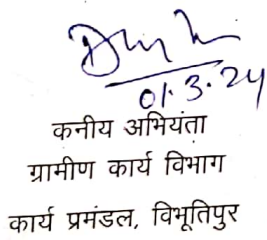 01.3.24
कनीय अभियंता
ग्रामीण कार्य विभाग
कार्य प्रमंडल, विभूतिपुर